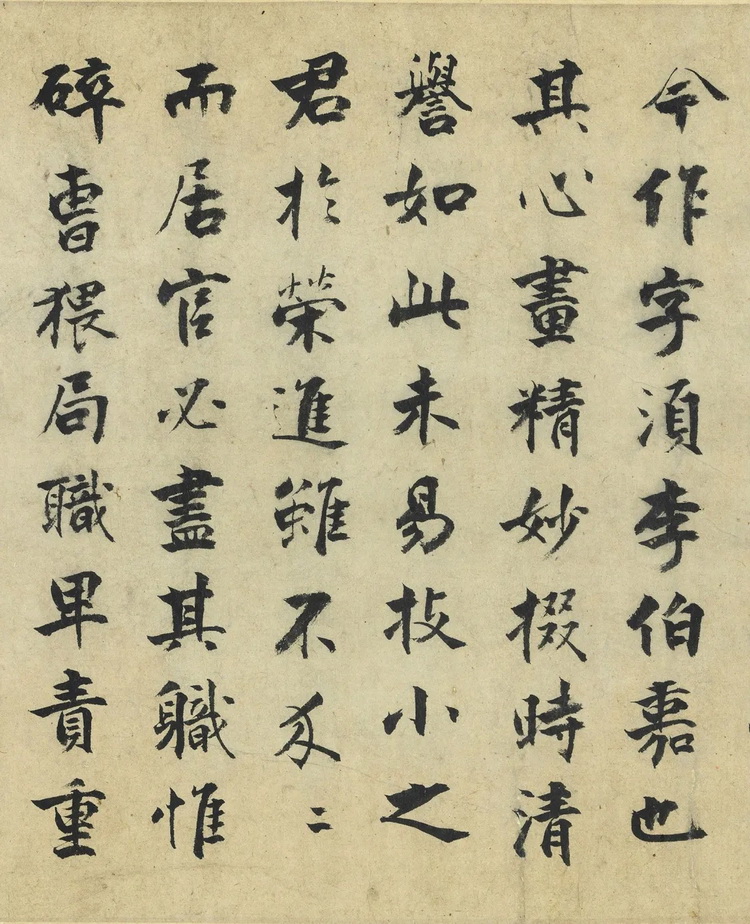 今作字須李伯嘉也
其心畫精妙掇時清
譽如此未易技小之
君於榮進雖不汲〻
而居官必盡其職惟
碎曹猥局職卑責重